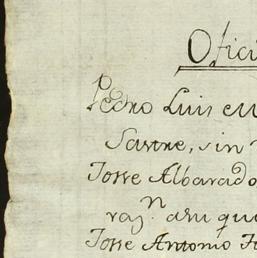 Ofici
Pedro Luis
Sastre, sin
Josse Albarado
raz.n asu qu
Josse Antonio